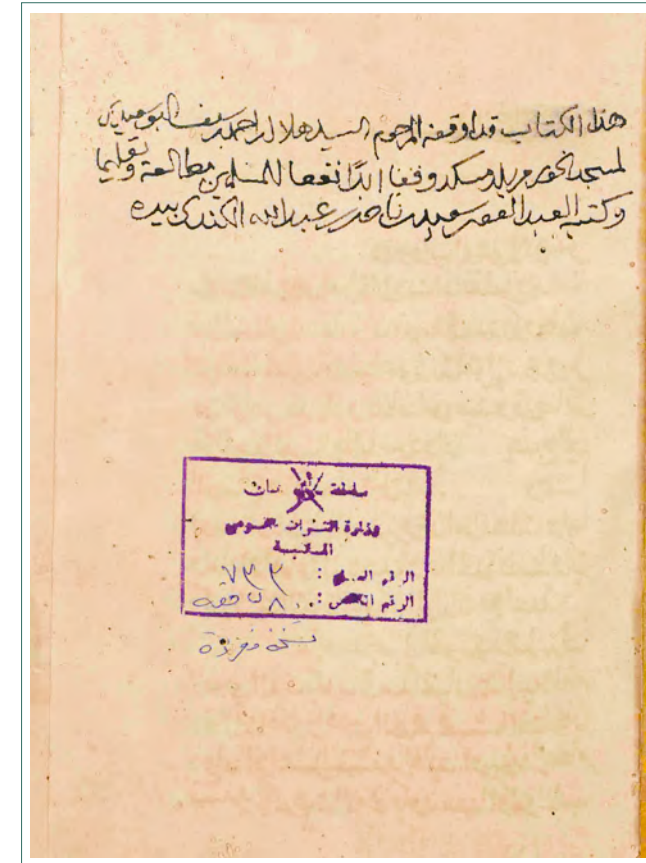 هذا الكتاب قد اوقفه المرحوم السيد هلال بن احمد بن سيف البوسعيدي
لمسجد الخور من بلد مسكد وقفا ابدًا نفعا للمسلمين مطالعة وتعليما
وكتبه العبد الفقير سعيد بن ناصر بن عبدالله الكندي بيده
سلطنة عمان
وزارة التراث القومي
المكتبة
الرقم العام : ٧٣٣
الرقم الخاص : ٨٠ فقه
نسخة مفردة